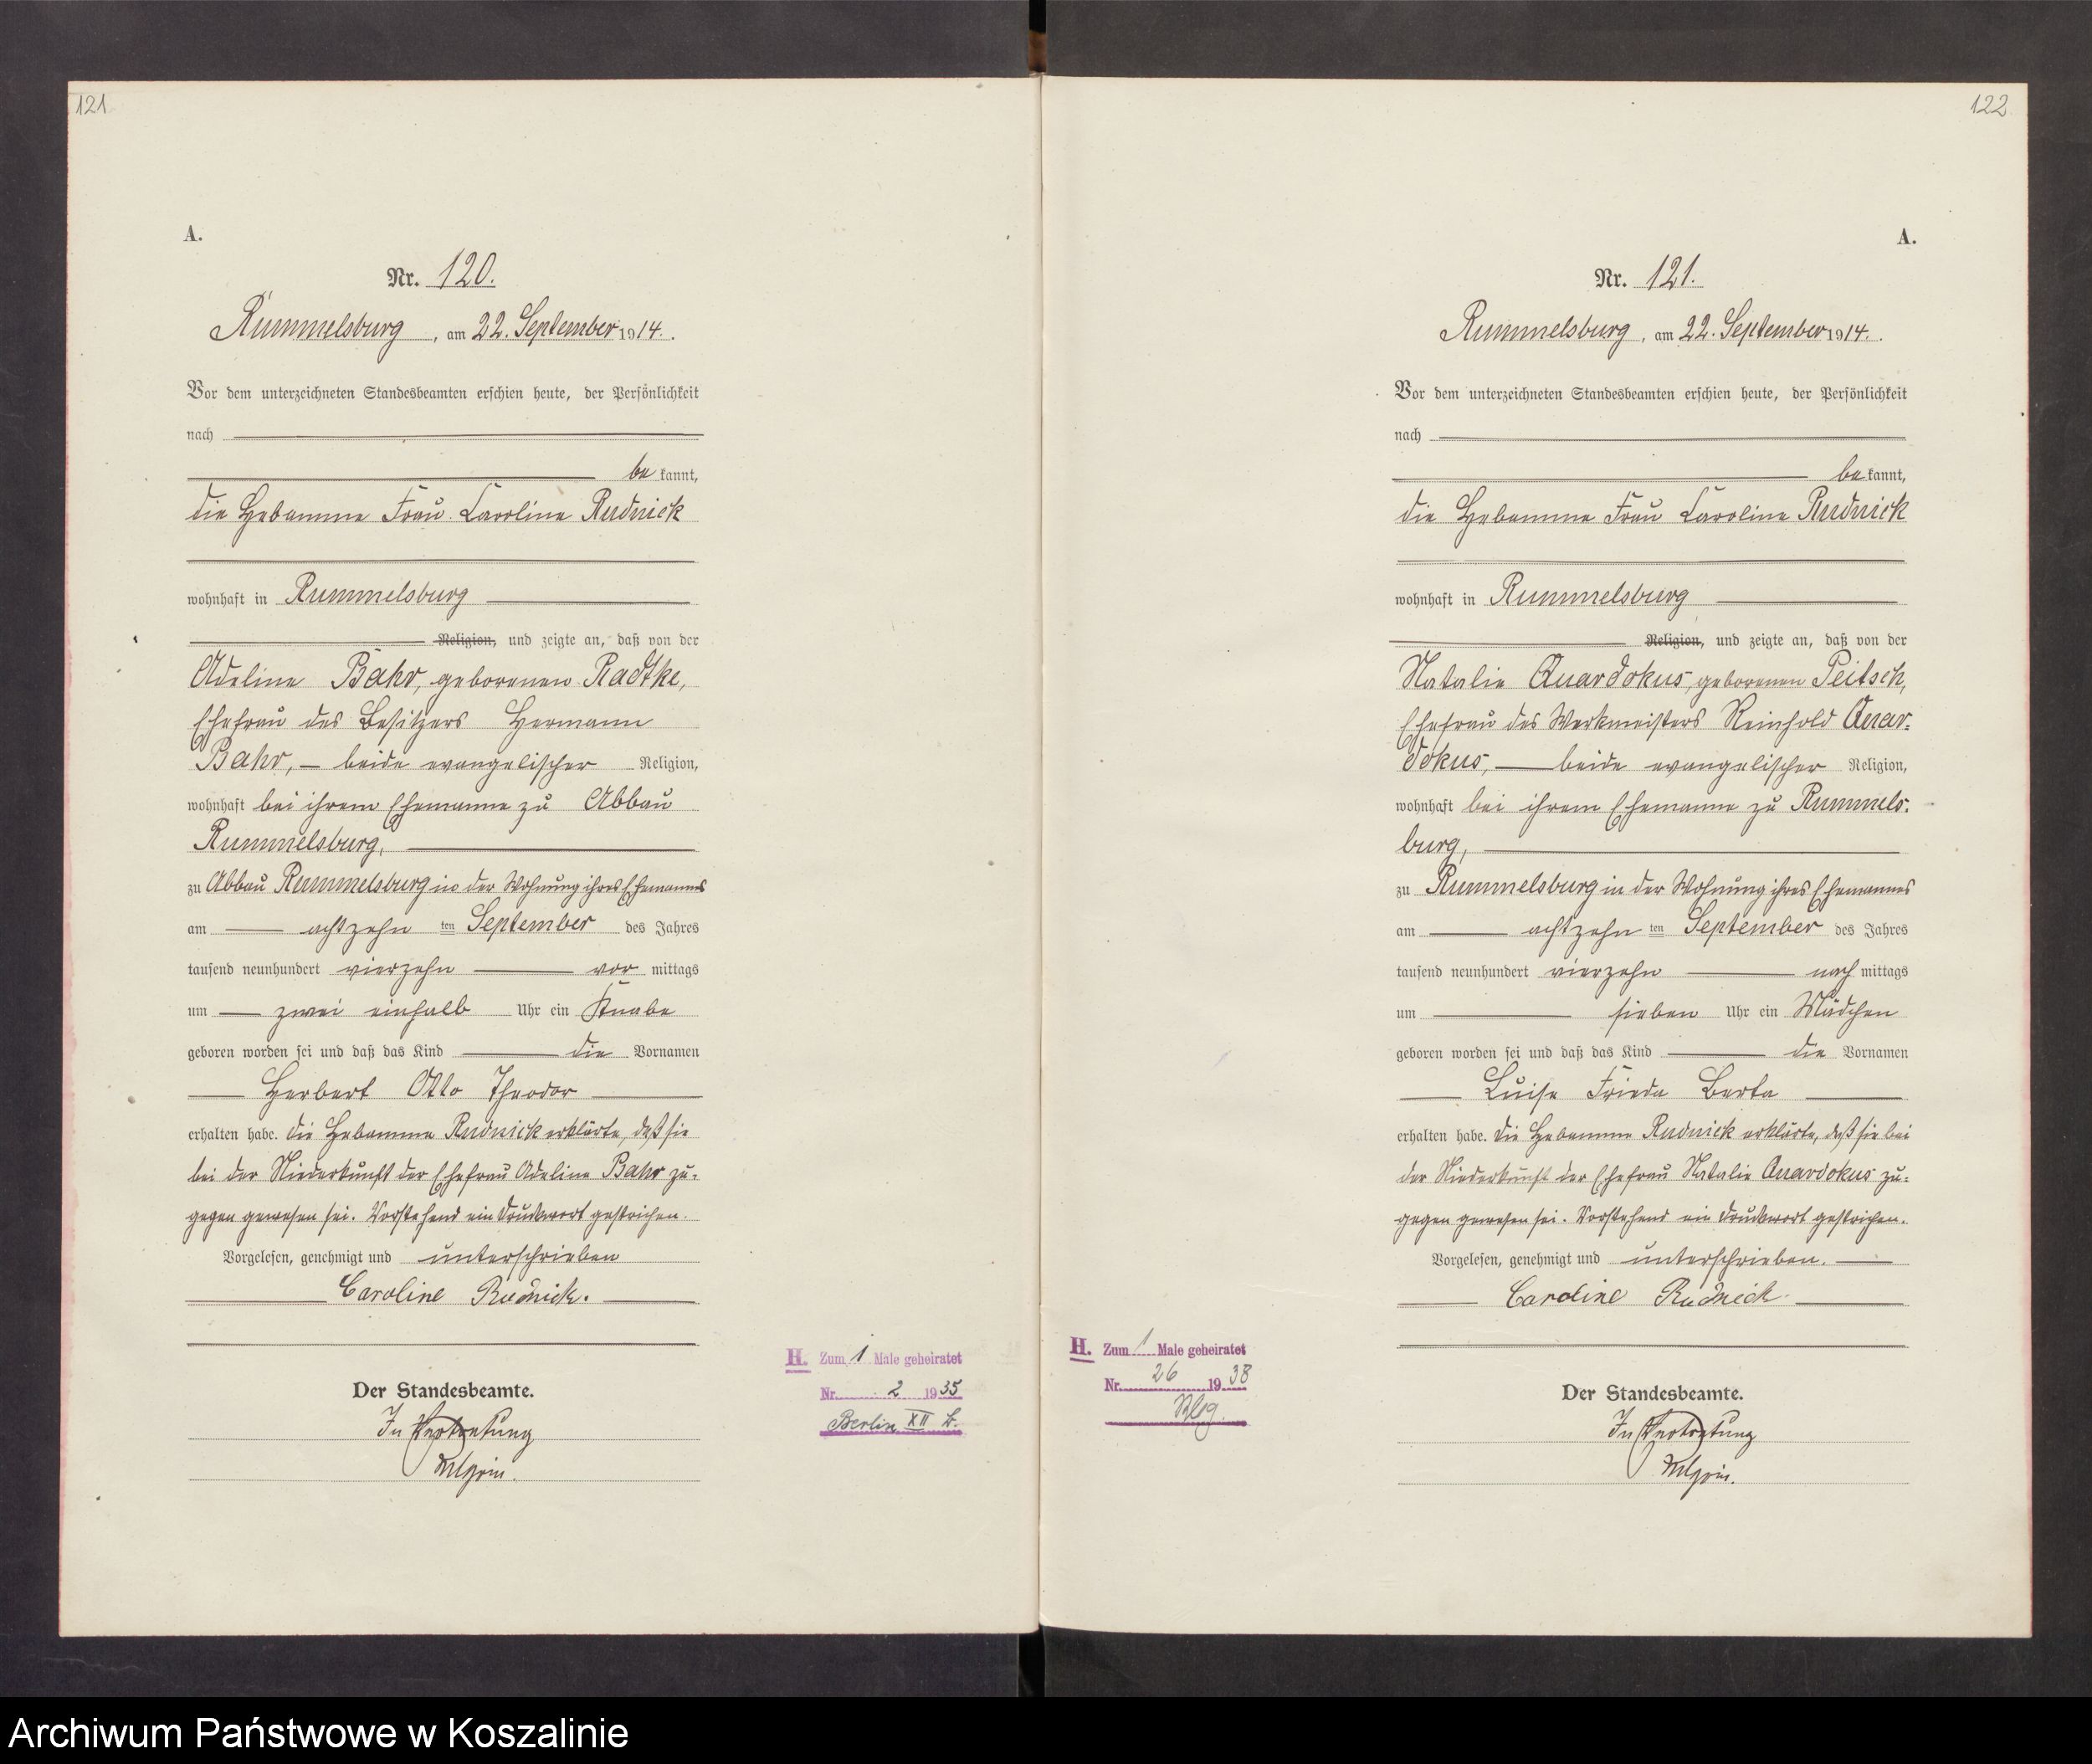 121
A.
Nr. 120.
Rummelsburg, am 22. September 1914.
Vor dem unterzeichneten Standesbeamten erschien heute, der Persönlichkeit
nach
be kannt,
die Hebamme Frau Caroline Rudnick
wohnhaft in Rummelsburg
Religion, und zeigte an, daß von der
Adeline Bahr, geborenen Radtke,
Ehefrau des Besitzers Hermann
Bahr, — beide evangelischer Religion,
wohnhaft bei ihrem Ehemanne zu Abbau
Rummelsburg,
zu Abbau Rummelsburg in der Wohnung ihres Ehemannes
am achtzehn ten September des Jahres
tausend neunhundert vierzehn vor mittags
um zwei einhalb Uhr ein Knabe
geboren worden sei und daß das Kind die Vornamen
Herbert Otto Theodor
erhalten habe. Die Hebamme Rudnick erklärte, daß sie
bei der Niederkunft der Ehefrau Adeline Bahr zu-
gegen gewesen sei. Vorstehend ein Druckwort gestrichen.
Vorgelesen, genehmigt und unterschrieben
Caroline Rudnick.
Der Standesbeamte.
In Vertretung
H. Zum 1 Male geheiratet
Nr. 2 1935
Berlin XII b.
122
A.
Nr. 121.
Rummelsburg, am 22. September 1914.
Vor dem unterzeichneten Standesbeamten erschien heute, der Persönlichkeit
nach
be kannt,
die Hebamme Frau Caroline Rudnick
wohnhaft in Rummelsburg
Religion, und zeigte an, daß von der
Natalie Quardokus, geborenen Peitsch,
Ehefrau des Werkmeisters Reinhold Quar-
dokus, — beide evangelischer Religion,
wohnhaft bei ihrem Ehemanne zu Rummels-
burg,
zu Rummelsburg in der Wohnung ihres Ehemannes
am achtzehn ten September des Jahres
tausend neunhundert vierzehn nach mittags
um sieben Uhr ein Mädchen
geboren worden sei und daß das Kind die Vornamen
Luise Frieda Berta
erhalten habe. Die Hebamme Rudnick erklärte, daß sie bei
der Niederkunft der Ehefrau Natalie Quardokus zu-
gegen gewesen sei. Vorstehend ein Druckwort gestrichen.
Vorgelesen, genehmigt und unterschrieben.
Caroline Rudnick.
Der Standesbeamte.
In Vertretung
H. Zum 1 Male geheiratet
Nr. 26 1938
Archiwum Państwowe w Koszalinie